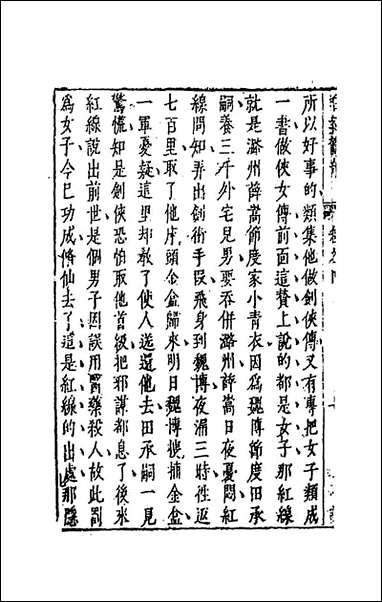 所以好事的類集他做劍俠傳又有專把女子類成
一書做俠女傳前面這贊上說的都是女子那紅線
就是潞州薛嵩節度家小青衣因為魏博節度田承
嗣養三千外宅兒男要吞併潞州薛嵩日夜憂悶紅
線問知弄出劍術手段飛身到魏博夜漏三時往返
七百里取了他床頭金盒歸來明日魏博搜捕金盒
一軍憂疑這里却教了使人送還他去田承嗣一見
驚慌知是劍俠恐怕取他首級把邪謀都息了後來
紅線說出前世是個男子因誤用醫藥殺人故此罰
為女子今已功成修仙去了這是紅線的出處那隱